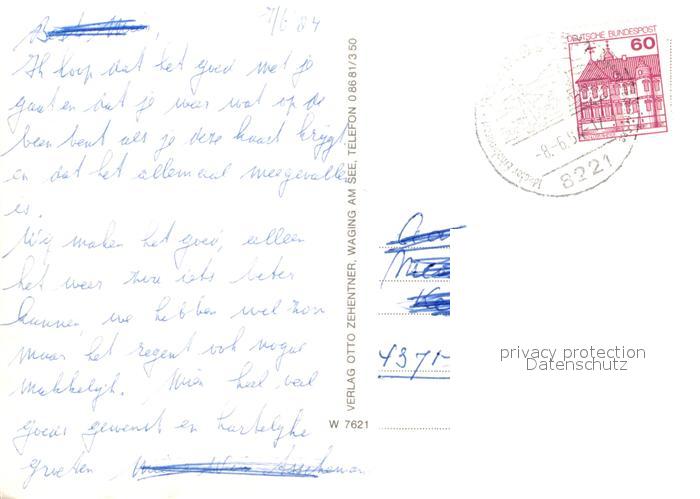 7/6 84
Ik hoop dat het goed met je
gaat en dat je weer wat op de
been bent als je deze kaart krijgt
en dat het allemaal meegevallen
is.
Wij maken het goed, alleen
het weer zou iets beter
kunnen, we hebben wel zon
maar het regent ook nogal
makkelijk. Mien heel veel
goeds gewenst en hartelijke
groeten
VERLAG OTTO ZEHENTNER, WAGING AM SEE, TELEFON 08681/350
W 7621
DEUTSCHE BUNDESPOST
60
-8.-6.
8221
4371-
privacy protection
Datenschutz